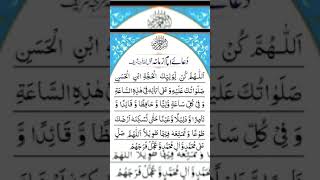 دعائے امام زمانہ
اَللّٰهُمَّ كُنْ
ابْنِ الْحَسَنِ
اَللّٰهُمَّ كُنْ لِّوَلِيِّكَ الْحُجَّةِ ابْنِ الْحَسَنِ
صَلَوَاتُكَ عَلَيْهِ وَ عَلٰى اٰبَائِهٖ فِيْ هٰذِهِ السَّاعَةِ
وَ فِيْ كُلِّ سَاعَةٍ وَلِيًّا وَّ حَافِظًا وَّ قَائِدًا
وَّ نَاصِرًا وَّ دَلِيْلًا وَّ عَيْنًا حَتّٰى تُسْكِنَهٗ اَرْضَكَ
طَوْعًا وَّ تُمَتِّعَهٗ فِيْهَا طَوِيْلًا اَللّٰهُمَّ صَلِّ
عَلٰى مُحَمَّدٍ وَّ اٰلِ مُحَمَّدٍ وَّ عَجِّلْ فَرَجَهُمْ